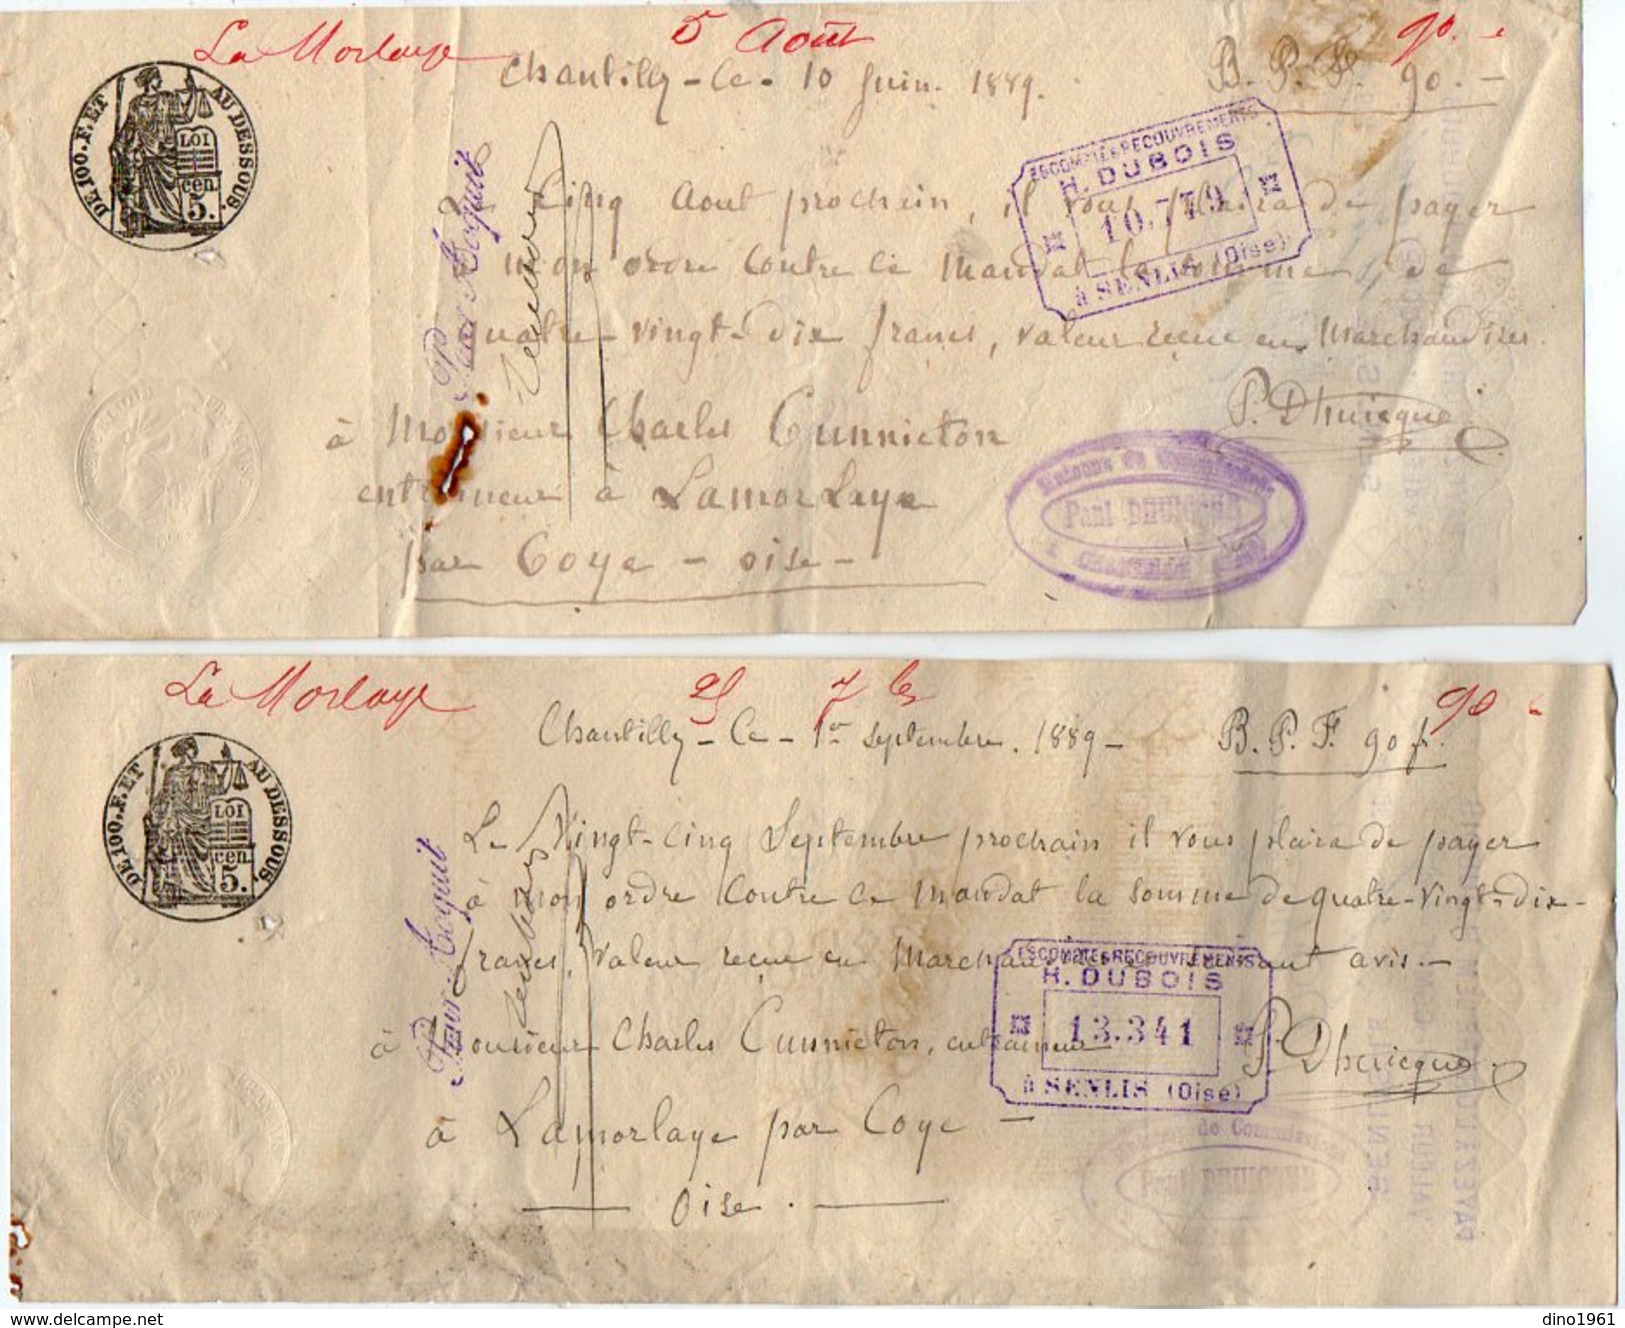 La Morlaye
5 Août
90. -
Chantilly - Le - 10 Juin. 1889.
B. P. F. 90. -
DE 100.F. ET AU DESSOUS.
LOI
5 cen.
ESCOMPTES RECOUVREMENTS
H. DUBOIS
10.779
à SENLIS (Oise)
Pour Acquit
Cinq Aout prochain, il vous plaira de payer
mon ordre contre ce mandat la somme, de
quatre-vingt-dix francs, valeur reçue en Marchandises.
P. Dhuicque
à Monsieur Charles Cunnicton
entraineur à Lamorlaye
par Coye - oise -
Maisons de Commission
Paul DHUICQUE
à CHANTILLY
La Morlaye
25 7bre
90 -
Chantilly - Le - 1er septembre. 1889 -
B. P. F. 90 fr.
DE 100.F. ET AU DESSOUS.
LOI
5 cen.
Le Vingt-cinq Septembre prochain il vous plaira de payer
à mon ordre contre ce mandat la somme de quatre-vingt-dix-
francs, valeur reçue en Marchandises suivant avis. -
Pour Acquit
ESCOMPTES RECOUVREMENTS
H. DUBOIS
13.341
à SENLIS (Oise)
à Monsieur Charles Cunnicton, entraineur
P. Dhuicque.
à Lamorlaye par Coye -
- Oise. -
de Commission
Paul DHUICQUE
dino1961